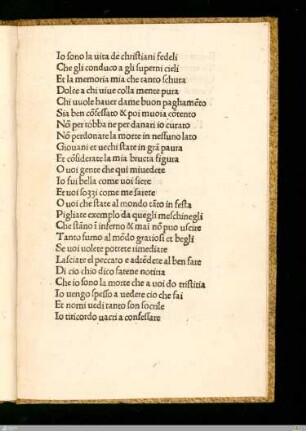 Io sono la uita de christiani fedeli
Che gli conduco a gli superni cieli
Et la memoria mia che tanto scura
Dolce a chi uiue colla mente pura
Chi uuole hauer da me buon paghamẽto
Sia ben cõfessato & poi muoia cõtento
Nõ per robba ne per danari io curato
Nõ perdonate la morte in nessuno lato
Giouani et uechi state in grã paura
Et cõsiderate la mia brutta figura
O uoi gente che qui miuedete
Io fui bella come uoi siete
Et uoi sozzi come me sarete
O uoi che state al mondo tãto in festa
Pigliate exemplo da quegli meschinegli
Che stãno ĩ inferno & mai nõ puo uscire
Tanto furno al mõdo gratiosi et begli
Se uoi uolete potrete rimediate
Lasciate el peccato e adtẽdete al ben fare
Di cio chio dico fatene notitia
Che io sono la morte che a uoi do tristitia
Io uengo spesso a uedere cio che fai
Et nomi uedi tanto son sottile
Io titicordo uacti a confessare